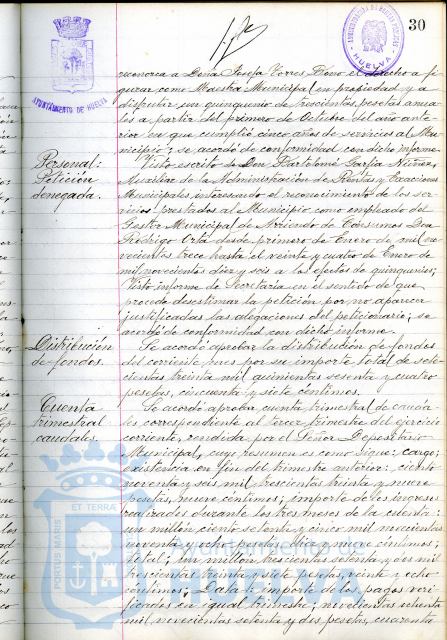 30
AYUNTAMIENTO DE HUELVA
HUELVA
reconozca a Doña Josefa Torres el derecho a fi-
gurar como Maestra Municipal en propiedad y a
disfrutar un quinquenio de trescientas pesetas anua-
les a partir del primero de Octubre del año ante-
rior en que cumplió cinco años de servicios al Mu-
nicipio; se acordó de conformidad con dicho informe.
Personal:
Petición
denegada.
Visto escrito de Don Bartolomé Garfia Núñez,
Auxiliar de la Administración de Rentas y Exacciones
Municipales, interesando el reconocimiento de los ser-
vicios prestados al Municipio como empleado del
Gestor Municipal de Arriendo de Consumos Don
Rodrigo Orta desde primero de Enero de mil no-
vecientos trece hasta el veinte y cuatro de Enero de
mil novecientos diez y seis a los efectos de quinquenios;
Visto informe de Secretaría en el sentido de que
procede desestimar la petición por no aparecer
justificadas las alegaciones del peticionario; se
acordó de conformidad con dicho informe.
Distribución
de fondos.
Se acordó aprobar la distribución de fondos
del corriente mes por su importe total de sete-
cientas treinta mil quinientas sesenta y cuatro
pesetas, cincuenta y siete céntimos.
Cuenta
trimestral
caudales.
Se acordó aprobar cuenta trimestral de cauda-
les correspondiente al tercer trimestre del ejercicio
corriente, rendida por el Señor Depositario
Municipal, cuyo resumen es como sigue; cargo;
existencia en fin del trimestre anterior: ciento
noventa y seis mil trescientas treinta y nueve
pesetas, nueve céntimos; importe de los ingresos
realizados durante los tres meses de la cuenta:
un millón ciento setenta y cinco mil novecientas
noventa y ocho pesetas diez y nueve céntimos;
total; un millón trescientas setenta y dos mil
trescientas treinta y siete pesetas veinte y ocho
céntimos; Data: importe de los pagos veri-
ficados en igual trimestre; novecientas ochenta
mil novecientas setenta y dos pesetas, cuarenta
ET TERRA
PORTUS MARIS
Ayuntamiento de
HUELVA